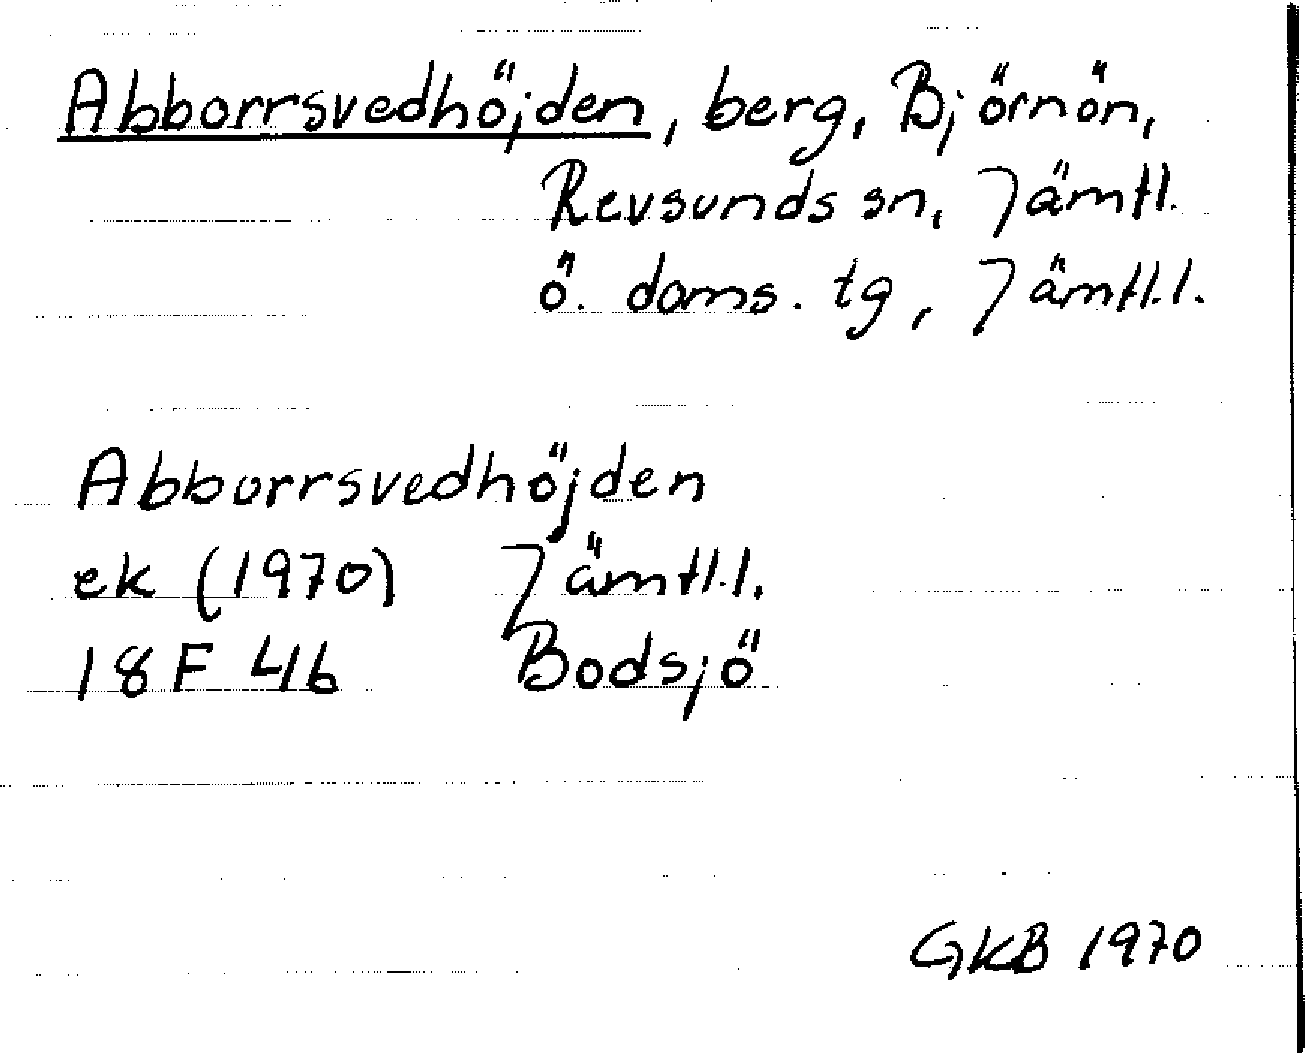 Abborrsvedhöjden, berg, Björnön,
Revsunds sn, Jämtl.
ö. doms. tg, Jämtl.l.
Abborrsvedhöjden
ek (1970) Jämtl.l.
18F 4b Bodsjö
GKB 1970